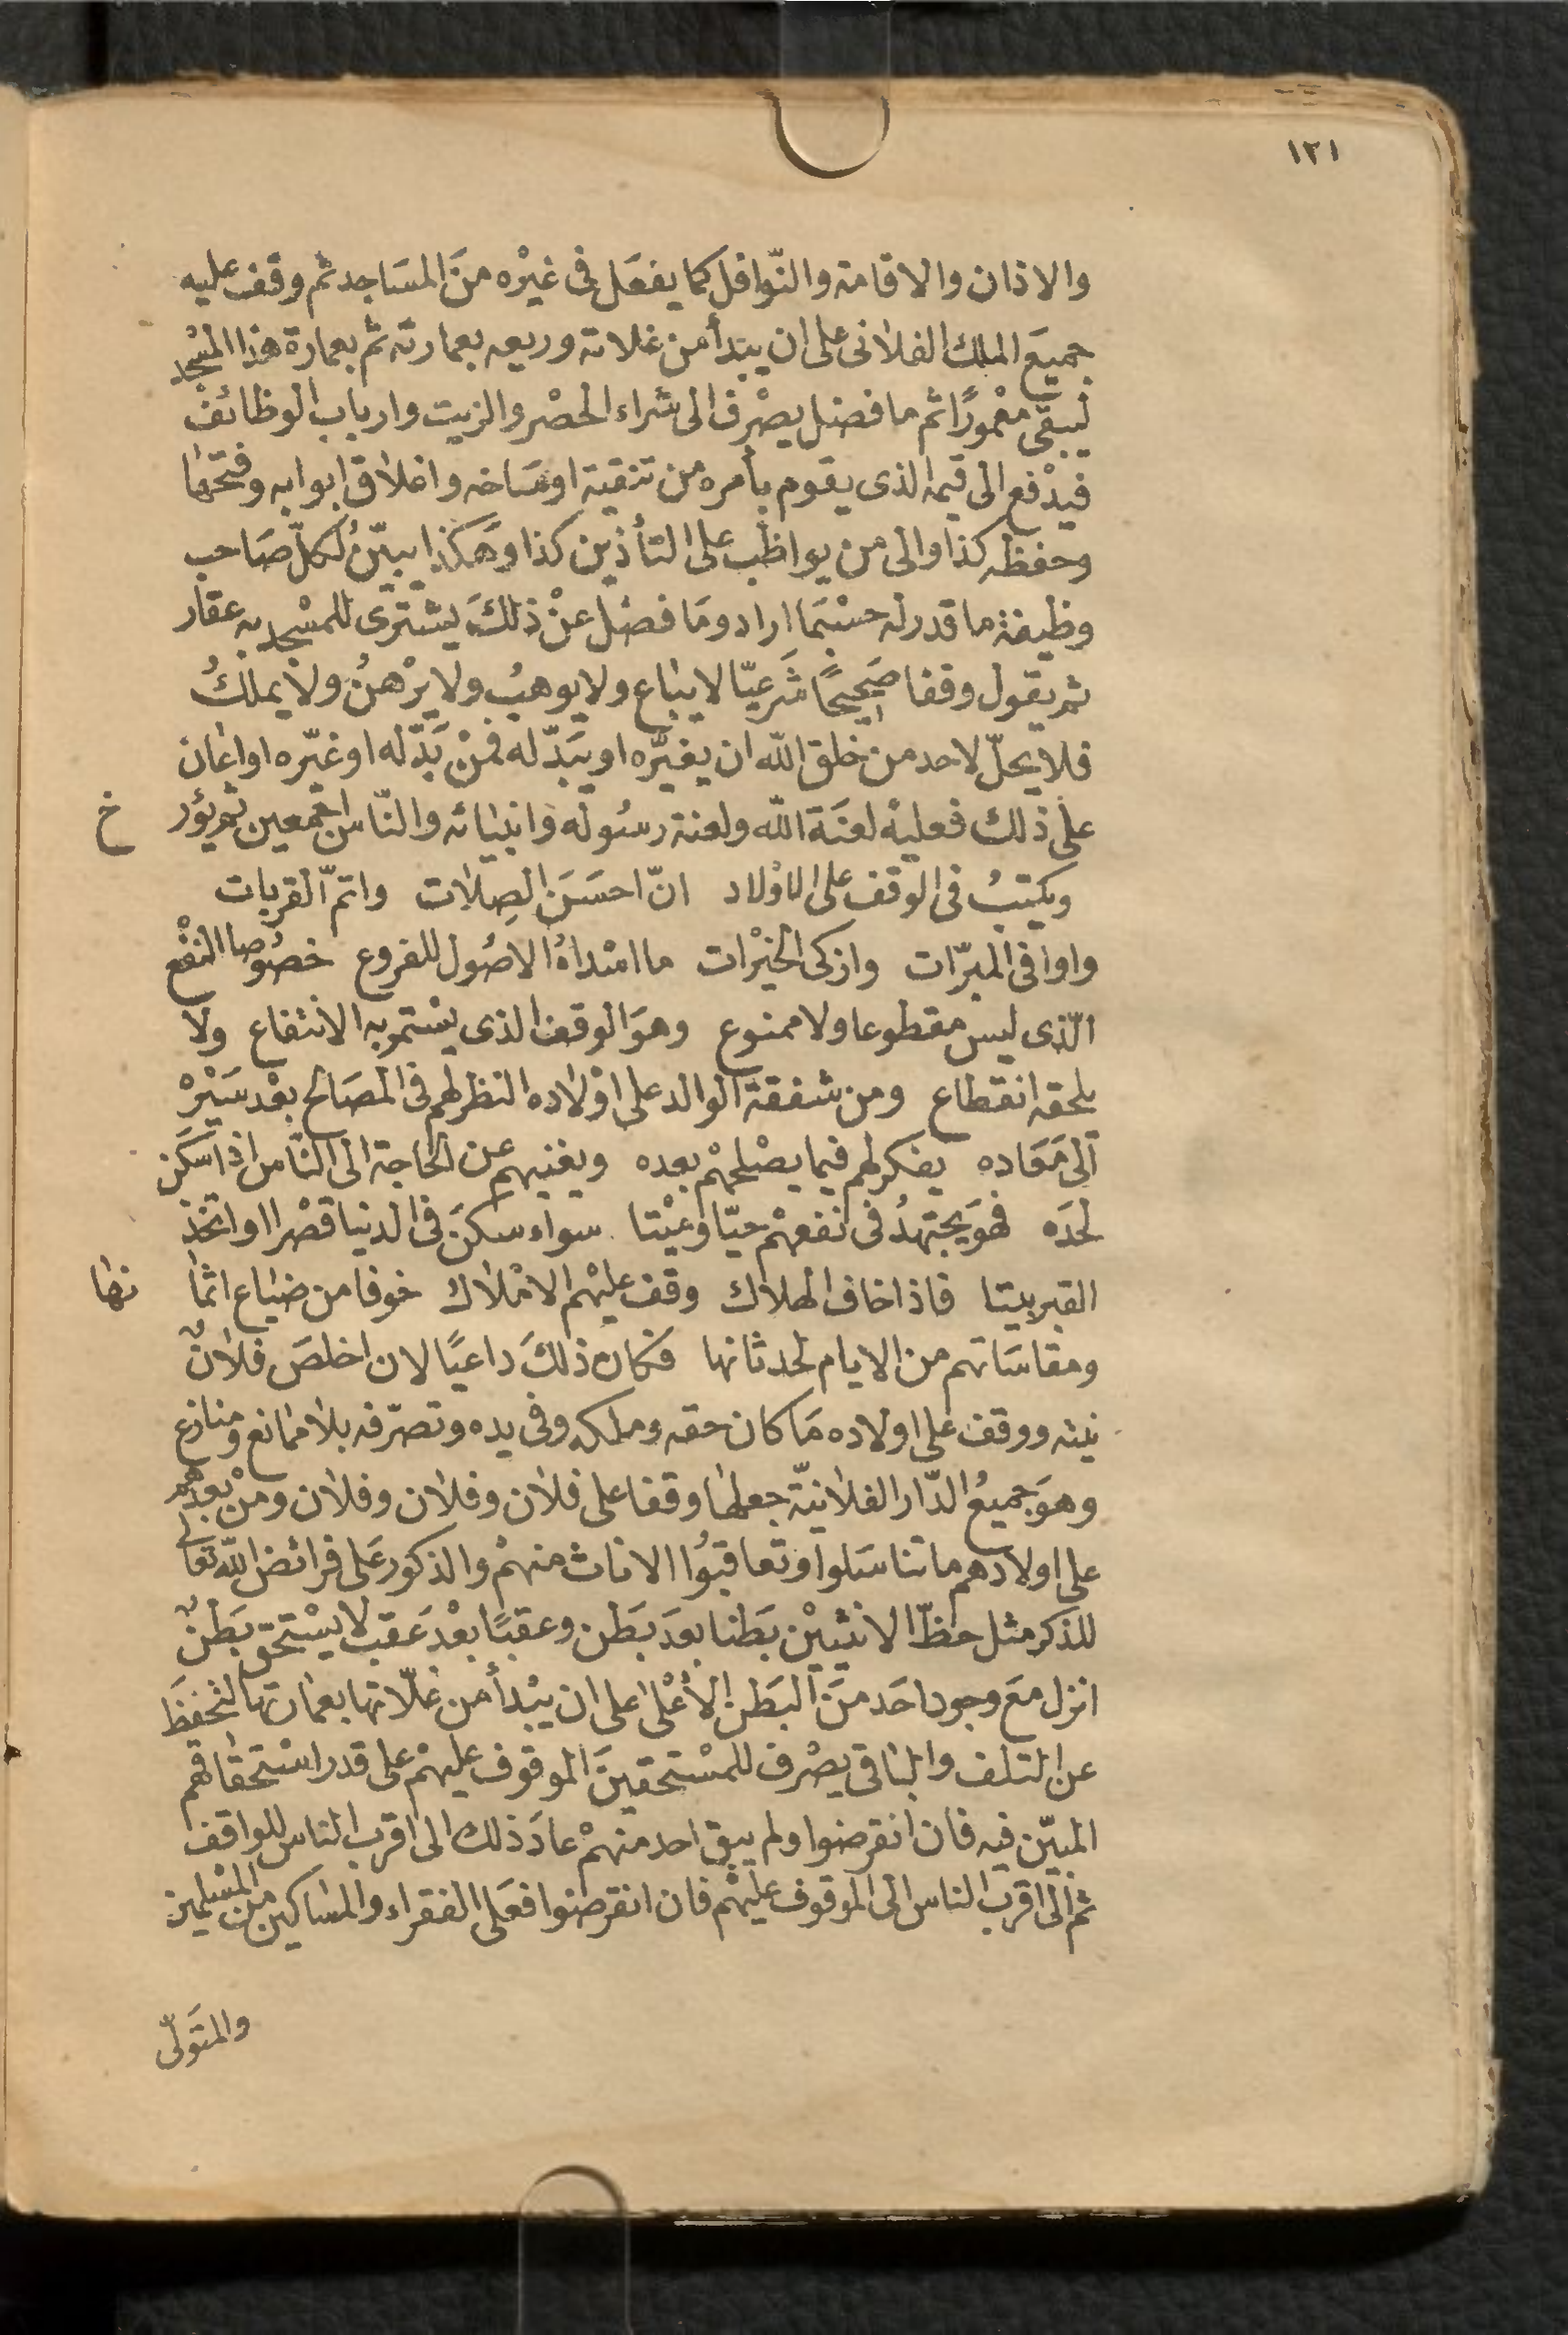 ١٢١
والاذان والاقامة والنّوافل كما يفعَل فى غيْره منَ المسَاجد ثم وقف عليه
جميعَ الملك الفلانى على ان يبتدأ من غلاته وريعه بعمارته ثم بعمارة هذا المسْجد
ليبقى معْمورًا ثم ما فضل يصْرف الى شراء الحصْر والزيت وارباب الوظائف
فيدْفع الى قيمه الذى يقوم بأمره من تنقية اوسَاخه واغلاق ابوابه وفتحها
وحفظه كذا والى من يواظب على التأذين كذا وهَكذا يبيّنُ لكلّ صَاحب
وظيفة ما قدر له حسْبَما اراد ومَا فضل عنْ ذلكَ يشترى للمسْجد به عقار
ثم يقول وقفا صَحيحًا شَرعيّا لا يباع ولا يوهبُ ولا يرْهنُ ولا يملكُ
فلا يحلّ لاحد من خلق الله ان يغيّره او يبَدّله فمنْ بَدّله او غيّره او اعان
على ذلك فعليْه لعنَة الله ولعنة رسُوله وانبيائه والنّاس اجْمعين ثم يؤر خ
ويكتبُ فى الوقف على الاوْلاد انّ احسَنَ الصِلات واتمّ القربات
واوا فى المبرّات وازكى الخيْرات ما اسْداهُ الاصُول للفروع خصُوصا النفْع
الّذى ليس مقطوعا ولا ممنوع وهوَ الوقف الذى يسْتمر به الانتفاع ولا
يلحقه انقطاع ومن شفقة الوالد على اوْلاده النظر لهم فى المصَالح بعْد سَيْرْ
الى مَعَاده يفكر لهم فيما يصْلحهمْ بعده ويغنيهم عن الحاجة الى النّاس اذا سَكَن
لحدَه فهوَ يجتهدُ فى نفعهمْ حيّا وميْتا سواء سكنَ فى الدنيا قصْرا او اتخذ
القبر بيتا فاذا خاف الهلاك وقف عليْهم الامْلاك خوفا من ضياع اثما نها
ومقاسَاتهم من الايام لحدثانها فكان ذلكَ داعيًا لان اخلصَ فلانٌ
نيته ووقف على اولاده مَا كان حقه وملكه وفى يده وتصرّفه بلا ممانع ومنازع
وهوَ جميعُ الدّار الفلانيّة جعلها وقفا على فلان وفلان وفلان ومن بعْدهم
على اولادهم ما تناسَلوا وتعاقبُوا الاناث منهمْ والذكور عَلى فرائض الله تعالى
للذكر مثل حظّ الانثيينْ بَطنا بعدَ بَطن وعقبًا بعْد عَقب لا يسْتحق بَطنٌ
انزل معَ وجود احَد منَ البَطن الأعْلى على ان يبْدأ من غلّاتها بعمارتها لتحفظَ
عن التلف والباقى يصْرف للمسْتحقينَ الموقوف عليهمْ على قدر اسْتحقاقهم
المبيّن فيه فان انقرضوا ولم يبق احد منهمْ عادَ ذلك الى اقرب الناس للواقف
ثم الى اقرب الناس الى الموقوف عليْهم فان انقرضوا فعَلى الفقراء والمساكين من المسْلمين
والمتَولّى